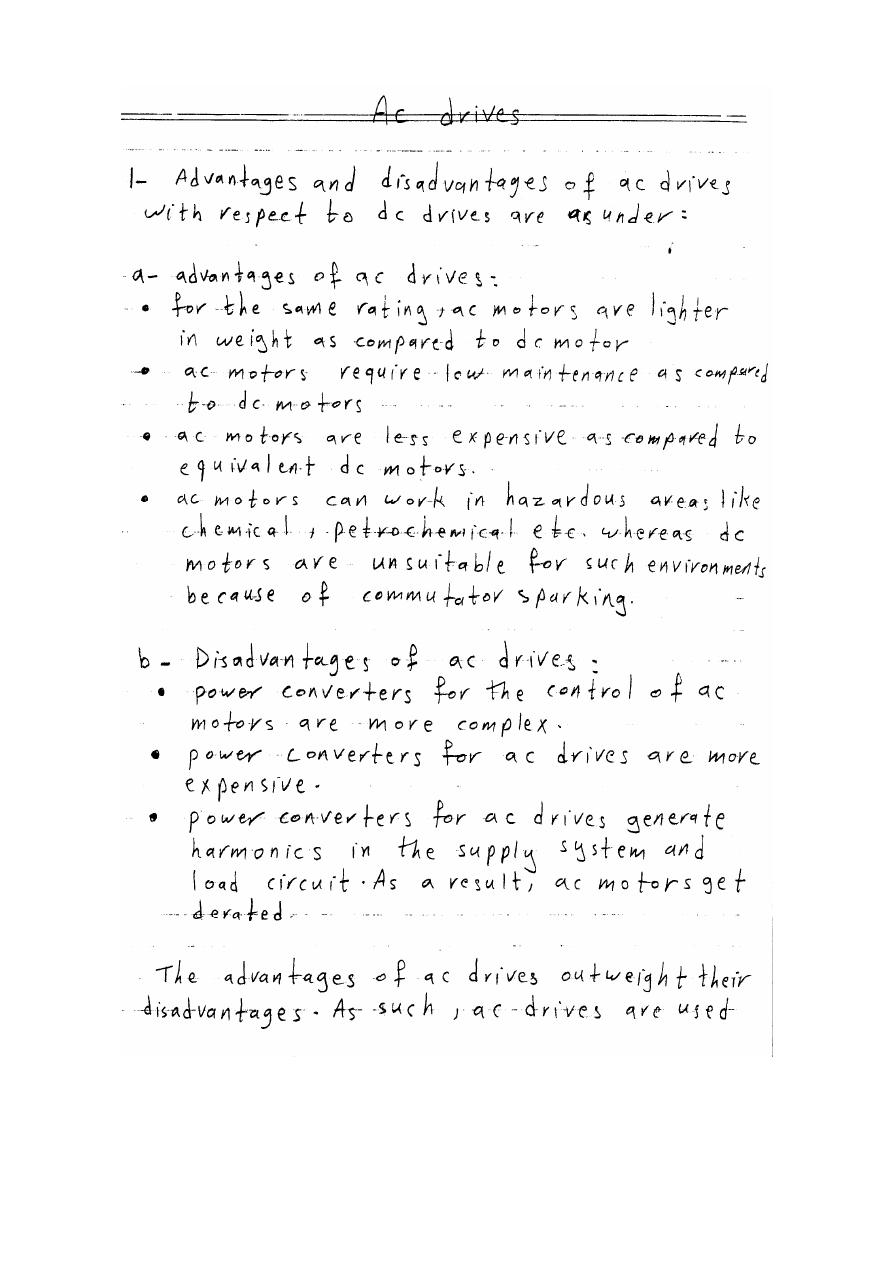 Ac drives
1- Advantages and disadvantages of ac drives
with respect to dc drives are as under:
a- advantages of ac drives:
• for the same rating, ac motors are lighter
in weight as compared to dc motor
• ac motors require low maintenance as compared
to dc motors
• ac motors are less expensive as compared to
equivalent dc motors.
• ac motors can work in hazardous areas like
chemical, petrochemical etc. whereas dc
motors are unsuitable for such environments
because of commutator sparking.
b- Disadvantages of ac drives:
• power converters for the control of ac
motors are more complex.
• power converters for ac drives are more
expensive.
• power converters for ac drives generate
harmonics in the supply system and
load circuit. As a result, ac motors get
derated.
The advantages of ac drives outweight their
disadvantages. As such, ac-drives are used